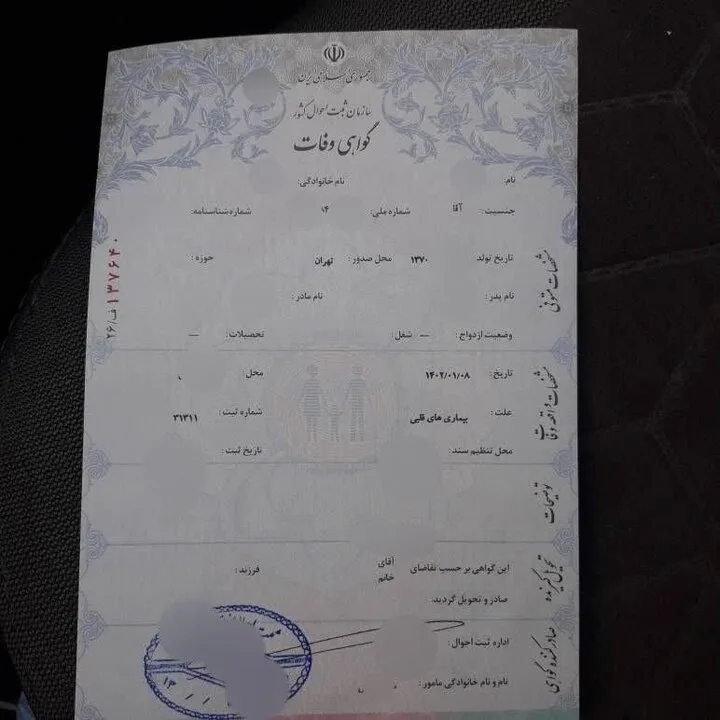 جمهوری اسلامی ایران
سازمان ثبت احوال کشور
گواهی وفات
نام: نام خانوادگی:
جنسیت: آقا شماره ملی: ۱۴ شماره شناسنامه:
تاریخ تولد ۱۳۷۰ محل صدور: تهران حوزه:
نام پدر: نام مادر:
وضعیت ازدواج: — شغل: تحصیلات: —
مشخصات متوفی
۱۳۷۶۴۰ ف/۲۶
تاریخ: ۱۴۰۲/۰۱/۰۸ محل:
علت: بیماری های قلبی شماره ثبت: ۳۱۳۱۱
محل تنظیم سند: تاریخ ثبت:
مشخصات واقعه وفات
توضیحات
این گواهی بر حسب تقاضای آقای فرزند:
خانم
صادر و تحویل گردید.
تحویل گیرنده
اداره ثبت احوال:
نام و نام خانوادگی مامور:
صادر کننده گواهی